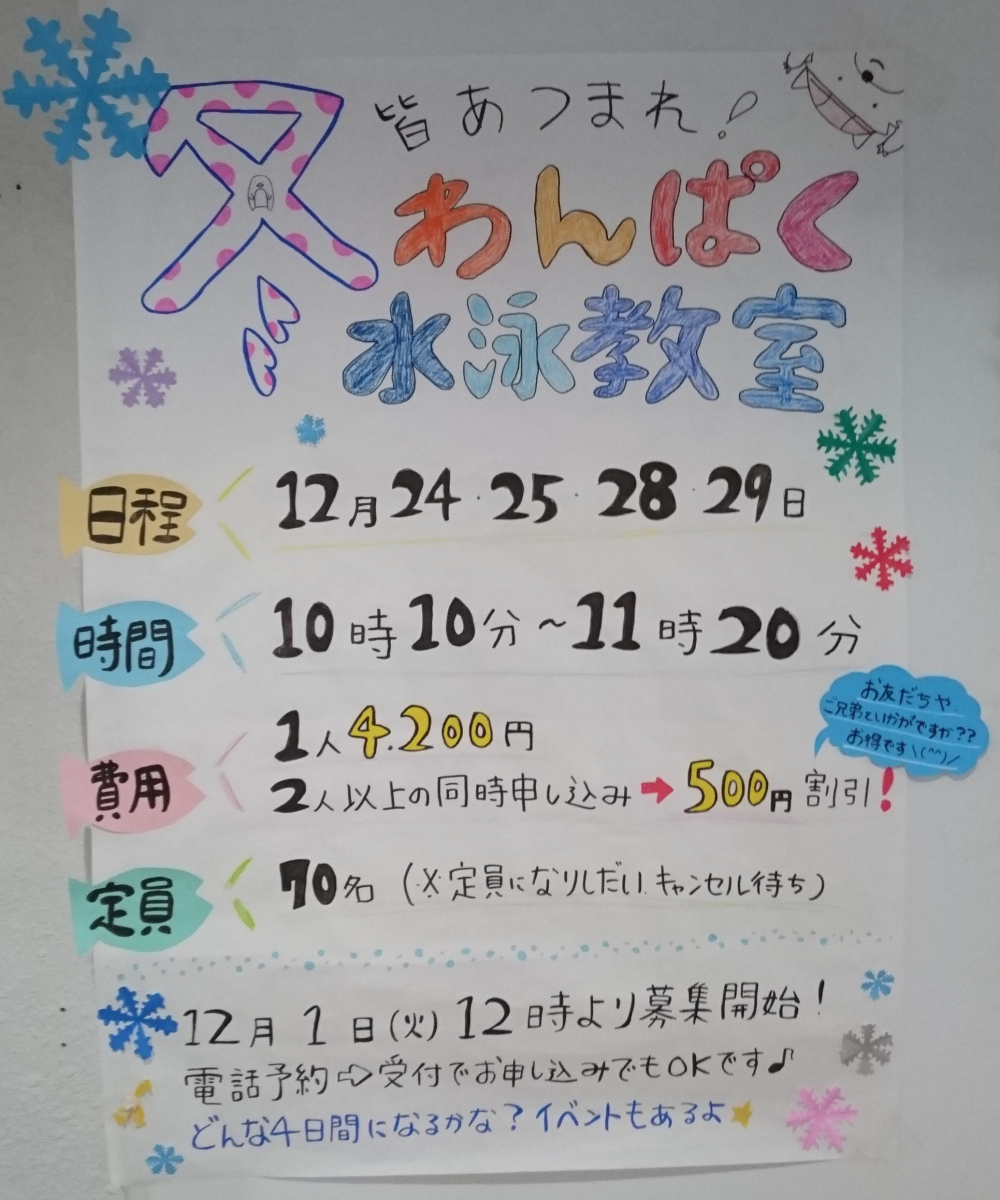 冬 皆あつまれ!
わんぱく
水泳教室
日程 12月24・25・28・29日
時間 10時10分~11時20分
費用 1人4,200円
2人以上の同時申し込み➡500円割引!
お友だちや、
ご兄弟といかがですか??
お得です\(^^)/
定員 70名(※定員になりしだい、キャンセル待ち)
12月1日(火)12時より募集開始!
電話予約⇨受付でお申し込みでもOKです♪
どんな4日間になるかな?イベントもあるよ★